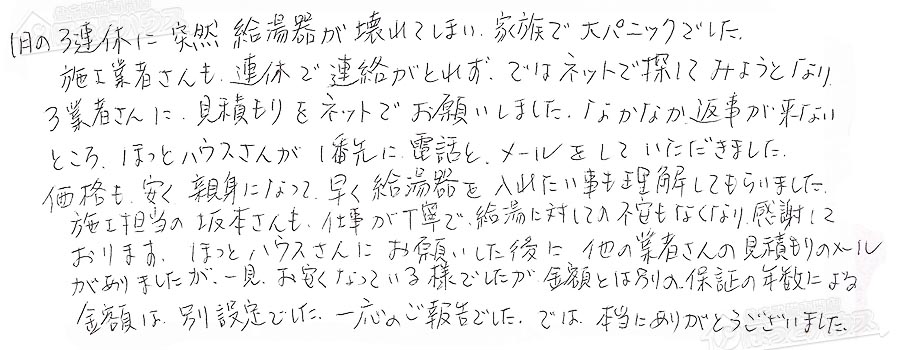 1月の3連休に突然給湯器が壊れてしまい、家族で大パニックでした。
施工業者さんも、連休で連絡がとれず、ではネットで探してみようとなり
3業者さんに、見積もりをネットでお願いしました。なかなか返事が来ない
ところ、ほっとハウスさんが1番先に、電話と、メールをしていただきました。
価格も、安く親身になって、早く給湯器を入れたい事も理解してもらいました。
施工担当の坂本さんも、仕事が丁寧で、給湯に対しての不安もなくなり、感謝して
おります。ほっとハウスさんにお願いした後に他の業者さんの見積もりのメール
がありましたが、一見、お安くなっている様でしたが金額とは別の、保証の年数による
金額は、別設定でした、一応のご報告でした。では、本当にありがとうございました。